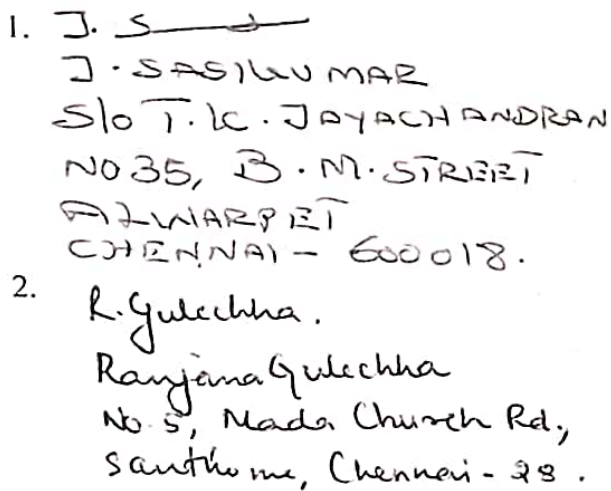 1. J. S
J. SASIKUMAR
S/o T.K. JAYACHANDRAN
NO 35, B.M. STREET
ALWARPET
CHENNAI - 600018.
2. R. Gulechha.
Ranjana Gulechha
No. 5, Mada Church Rd.,
Santhome, Chennai - 28.